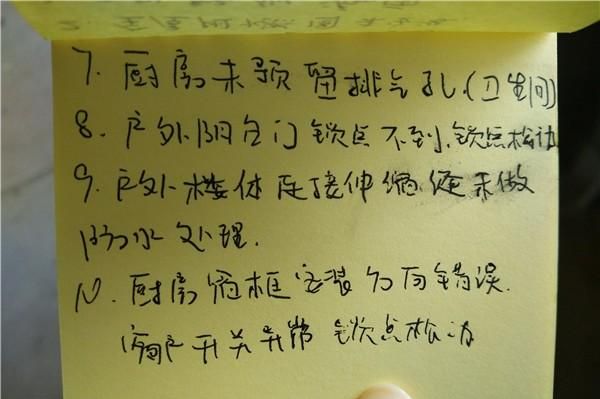 7. 厨房未预留排气孔.(卫生间)
8. 户外阳台门锁点不到.锁点松动
9. 户外楼体连接伸缩缝未做
防水处理.
10. 厨房窗框安装方向错误.
窗户开关异常 锁点松动